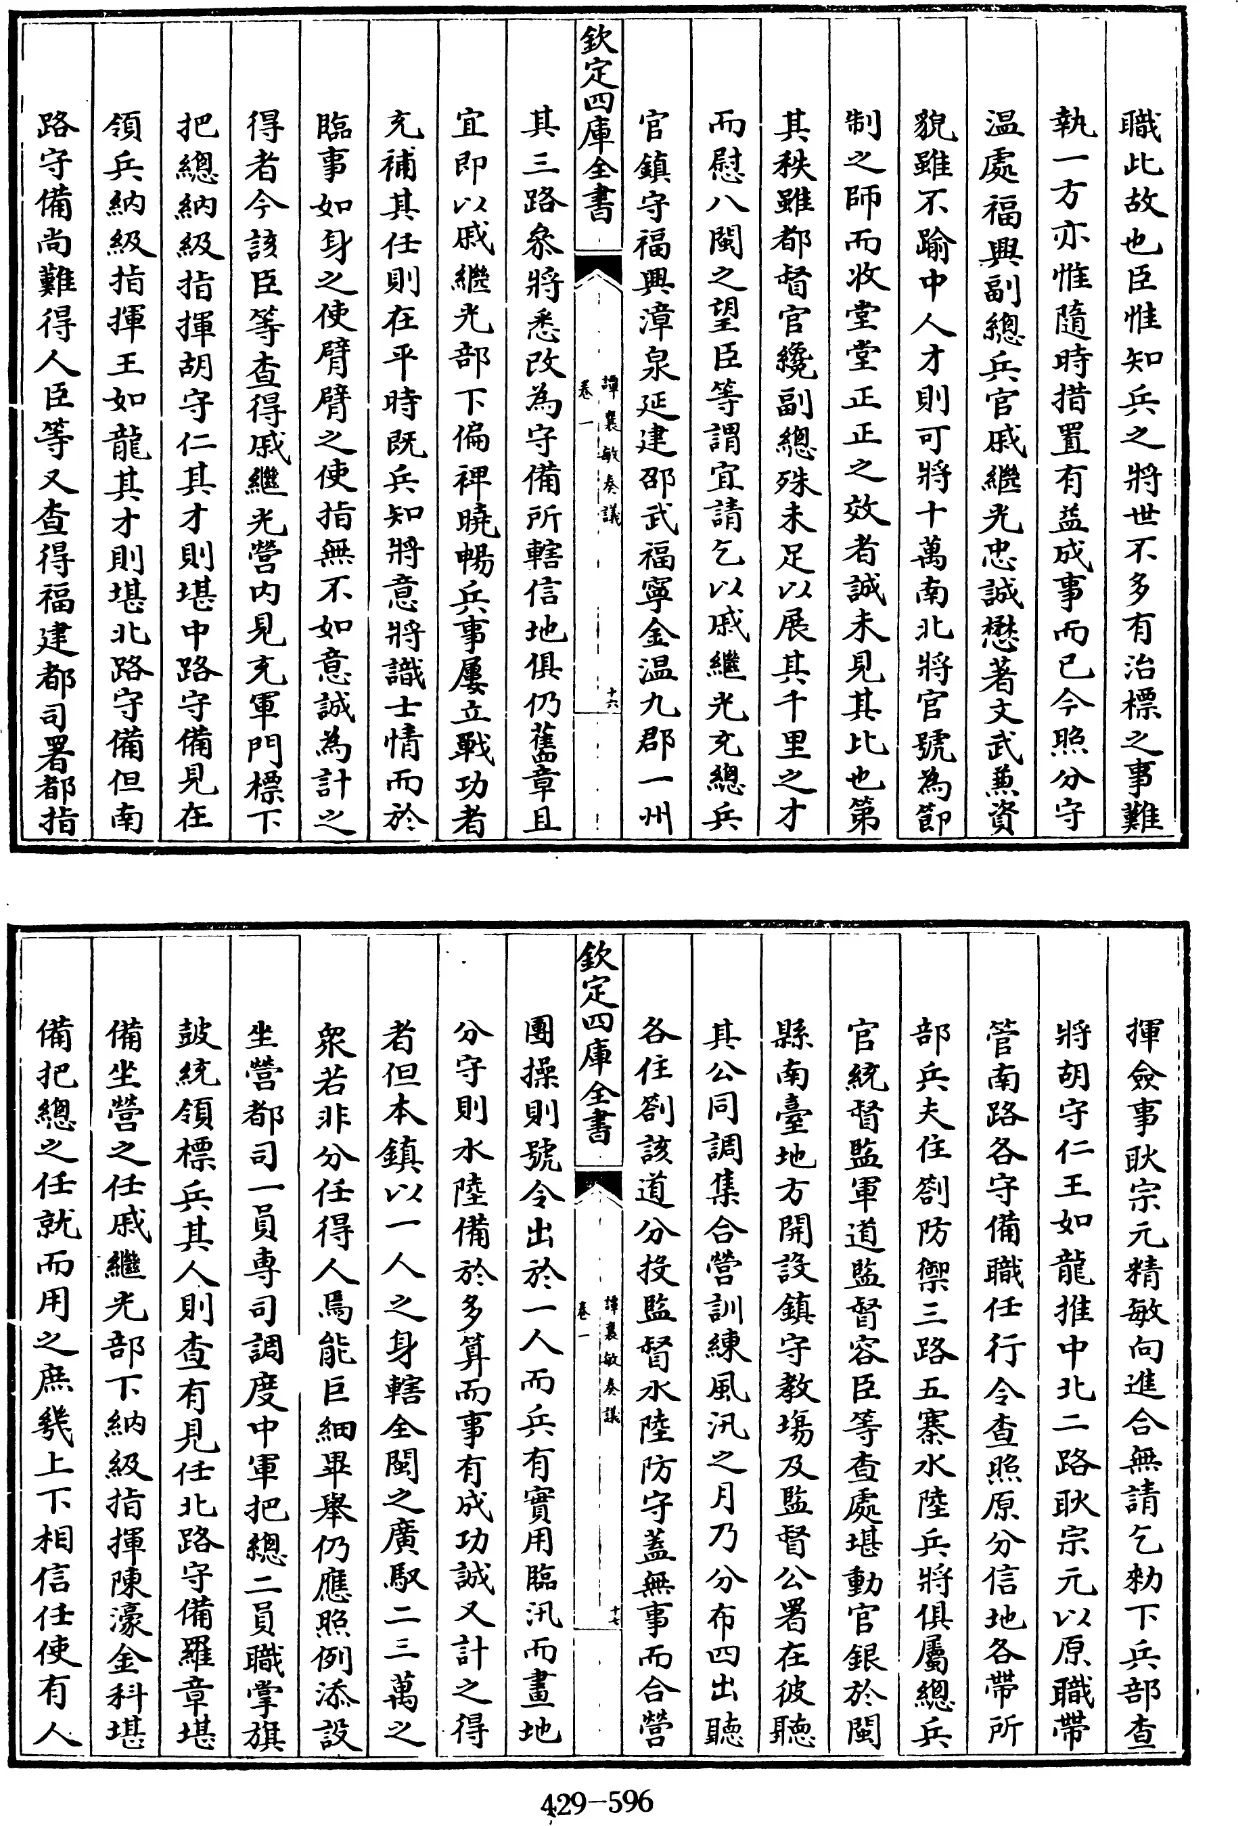 職此故也臣惟知兵之將世不多有治標之事難
執一方亦惟隨時措置有益成事而已今照分守
温處福興副總兵官戚繼光忠誠懋著文武兼資
貌雖不踰中人才則可將十萬南北將官號為節
制之師而收堂堂正正之效者誠未見其比也第
其秩雖都督官纔副總殊未足以展其千里之才
而慰八閩之望臣等謂宜請乞以戚繼光充總兵
官鎮守福興漳泉延建邵武福寧金温九郡一州
欽定四庫全書
譚襄敏奏議
卷一
十六
其三路叅將悉改為守備所轄信地俱仍舊章且
宜即以戚繼光部下偏裨曉暢兵事屢立戰功者
充補其任則在平時既兵知將意將識士情而於
臨事如身之使臂臂之使指無不如意誠為計之
得者今該臣等查得戚繼光營内見充軍門標下
把總納級指揮胡守仁其才則堪中路守備見在
領兵納級指揮王如龍其才則堪北路守備但南
路守備尚難得人臣等又查得福建都司署都指
揮僉事耿宗元精敏向進合無請乞勑下兵部查
將胡守仁王如龍推中北二路耿宗元以原職帶
管南路各守備職任行令查照原分信地各帶所
部兵夫住劄防禦三路五寨水陸兵將俱屬總兵
官統督監軍道監督容臣等查處堪動官銀於閩
縣南臺地方開設鎮守教塲及監督公署在彼聽
其公同調集合營訓練風汛之月乃分布四出聽
各住劄該道分投監督水陸防守蓋無事而合營
欽定四庫全書
譚襄敏奏議
卷一
十七
團操則號令出於一人而兵有實用臨汛而畫地
分守則水陸備於多算而事有成功誠又計之得
者但本鎮以一人之身轄全閩之廣馭二三萬之
衆若非分任得人焉能巨細畢舉仍應照例添設
坐營都司一員專司調度中軍把總二員職掌旗
鼓統領標兵其人則查有見任北路守備羅章堪
備坐營之任戚繼光部下納級指揮陳濠金科堪
備把總之任就而用之庶幾上下相信任使有人
429-596